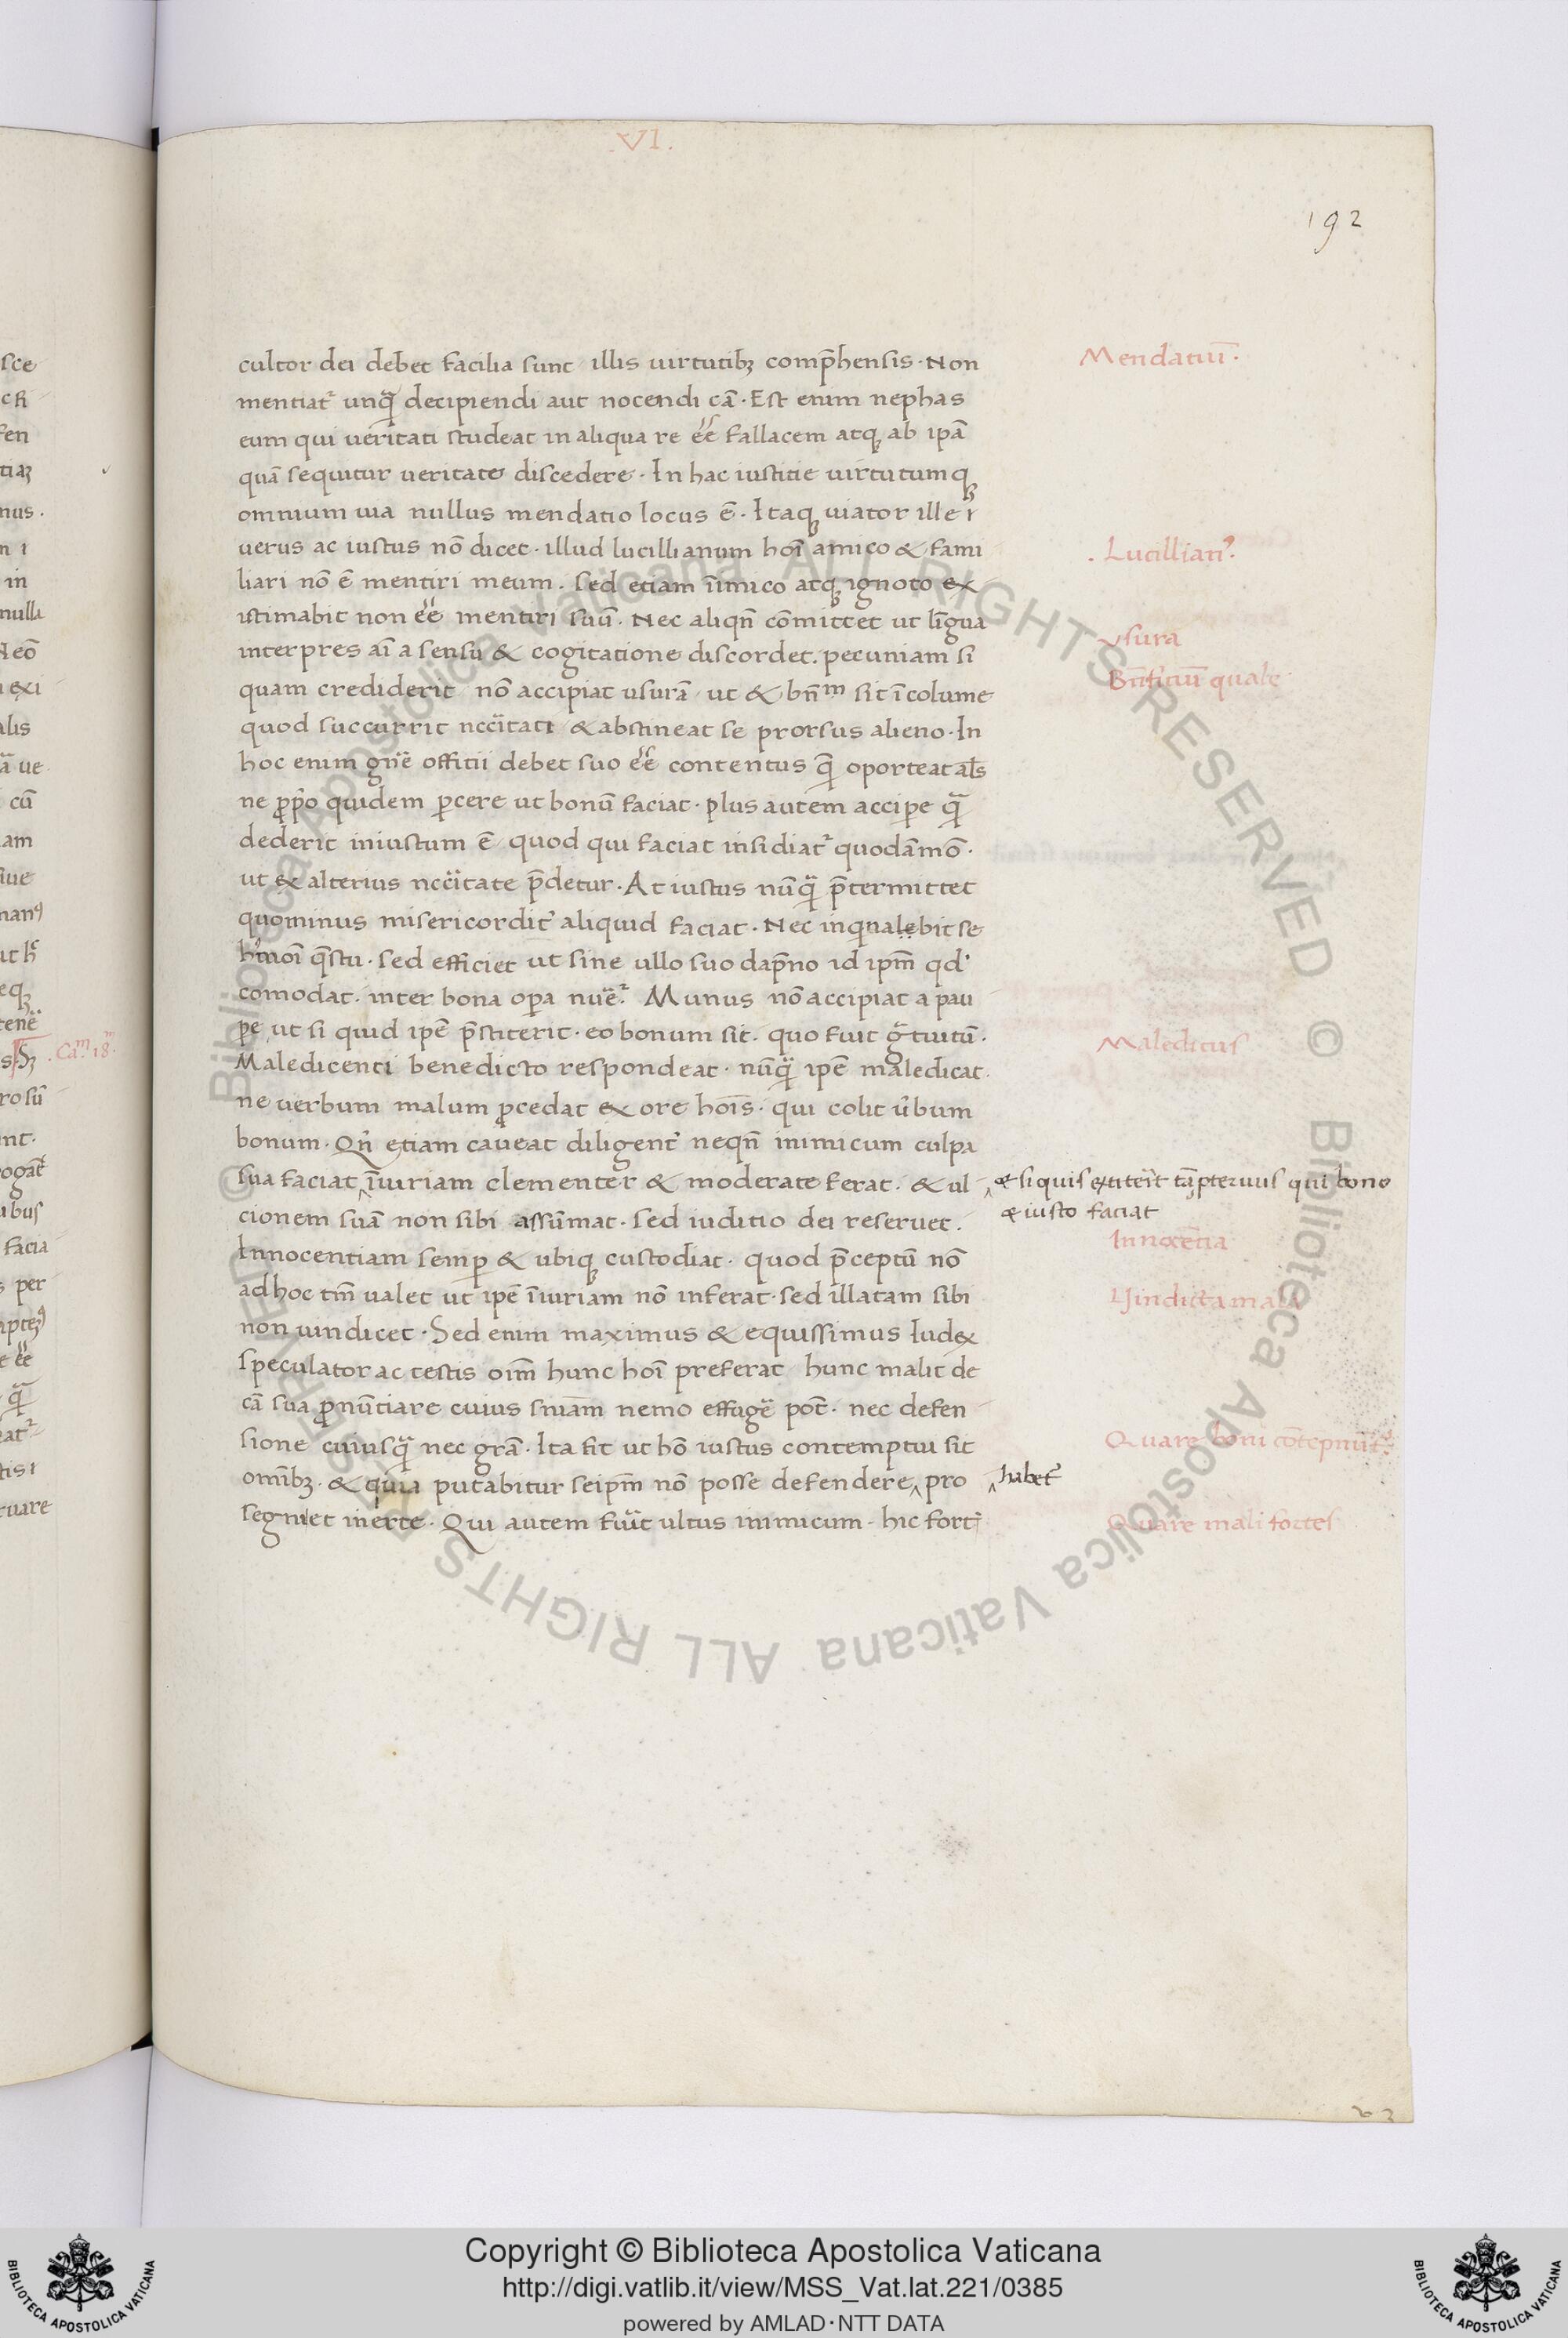 .VI.
192
cultor dei debet facilia sunt illis uirtutibꝫ comp̄hensis · Non
mentiat᷑ unq̃ decipiendi aut nocendi cā · Est enim nephas
eum qui ueritati studeat in aliqua re ēē fallacem atqꝫ ab ipā
quā sequitur ueritate discedere · In hac iustitie uirtutumqꝫ
omnium uia nullus mendatio locus ē · Itaqꝫ uiator ille
uerus ac iustus nō dicet · illud lucillianum hoī amico & fami
liari nō ē mentiri meum · sed etiam īimico atqꝫ ignoto ex
istimabit non ēē mentiri suū · Nec aliqn̄ cōmittet ut līgua
interpres aī a sensu & cogitatione discordet · pecuniam si
quam crediderit nō accipiat usurā ut & bn̄m sit īcolume
quod succurrit nccītati & abstineat se prorsus alieno · In
hoc enim gn̄e offitii debet suo ēē contentus q̄ oporteat al̄s
ne ꝓp̄o quidem ꝑcere ut bonū faciat · plus autem acciꝑe q̃
dederit iniustum ē quod qui faciat insidiat᷑ quodāmō ·
ut ex alterius nccītate p̄detur · At iustus nūq̃ p̄termittet
quominus misericordit᷑ aliquid faciat · Nec inquinalebit se
hmōi q̄stu · sed efficiet ut sine ullo suo dapno id ipm̄ qd
comodat · inter bona oꝑa nūe᷑ · Munus nō accipiat a pau
ꝑe ut si quid ipē p̄stiterit · eo bonum sit · quo fuit g̃tuitū ·
Maledicenti benedicto respondeat · nūq̃ ipē maledicat ·
ne uerbum malum ꝓcedat ex ore hoīs · qui colit ūbum
bonum · Qn̄ etiam caueat diligent᷑ neqn̄ inimicum culpa
sua faciat īiuriam clementer & moderate ferat · & ul
cionem suā non sibi assūmat · sed iuditio dei reseruet ·
Innocentiam semꝑ & ubiqꝫ custodiat · quod p̄ceptū nō
ad hoc tm̄ ualet ut ipē īiuriam nō inferat · sed illatam sibi
non uindicet · Sed enim maximus & equissimus Iudex
speculator ac testis oīm hunc hoī preferat hunc malit de
cā sua ꝓnūtiare cuius sniam nemo effugē pōt · nec defen
sione cuiusq̃ nec grā · Ita fit ut hō iustus contemptui sit
omībꝫ · & quia putabitur seipm̄ nō posse defendere pro
segni et inerte · Qui autem fuīt ultus inimicum · hic forti
Mendatiū ·
Lucillianꝰ ·
Vsura
Bn̄fitiū quale
Maledicus
& si quis extitēit tā pteruus qui bono
& iusto faciat
Innocētia
Vindicta mala
Quare boni cōtepnūt᷑
habet᷑
Quare mali fortes
sce
nus ·
in
nulla
exi
alis
cū
am
Cam 18
facia
per
uare
Copyright © Biblioteca Apostolica Vaticana
http://digi.vatlib.it/view/MSS_Vat.lat.221/0385
powered by AMLAD·NTT DATA
BIBLIOTECA APOSTOLICA VATICANA
BIBLIOTECA APOSTOLICA VATICANA
© Biblioteca Apostolica Vaticana ALL RIGHTS RESERVED © Biblioteca Apostolica Vaticana ALL RIGHTS RESERVED